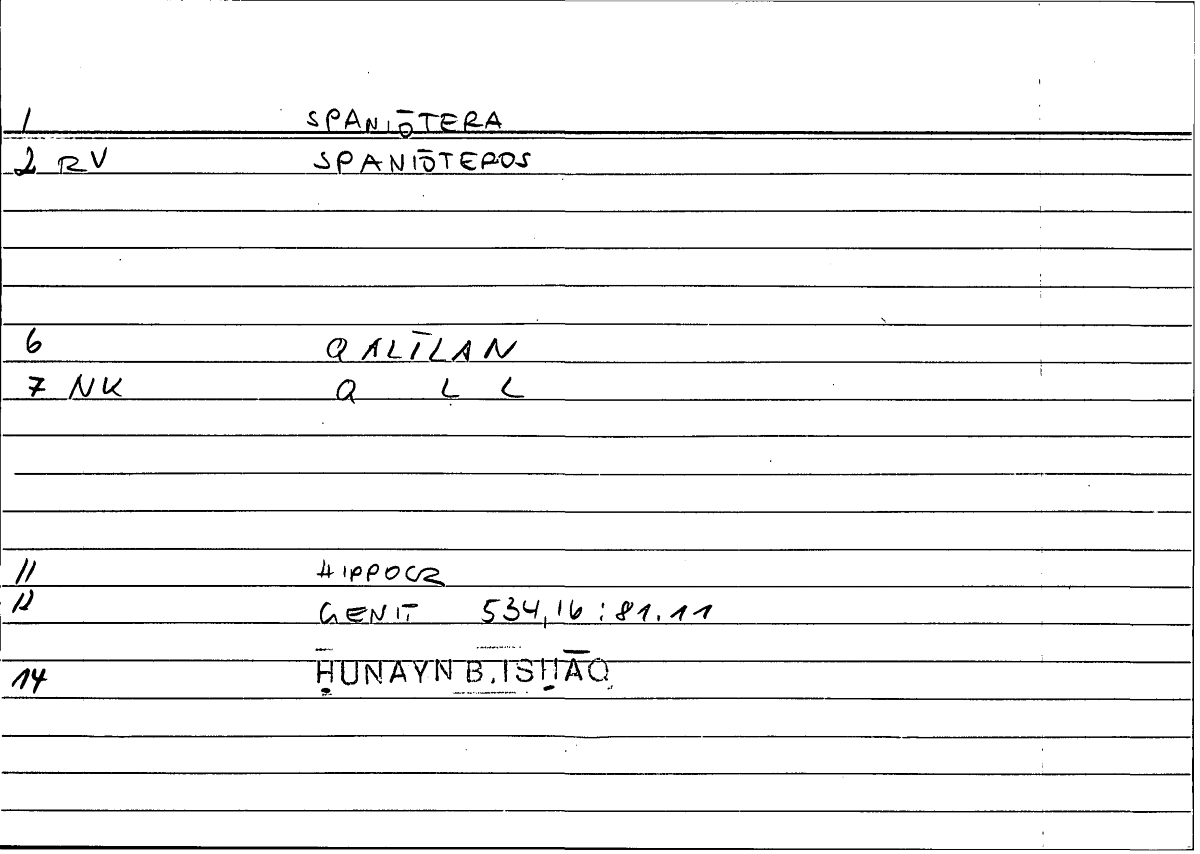 1 SPANIŌTERA
2 RV SPANIŌTEROS
6 QALĪLAN
7 NK Q L L
11 HIPPOCR
12 GENIT 534,16 : 81.11
14 ḤUNAYN B. ISḤĀQ